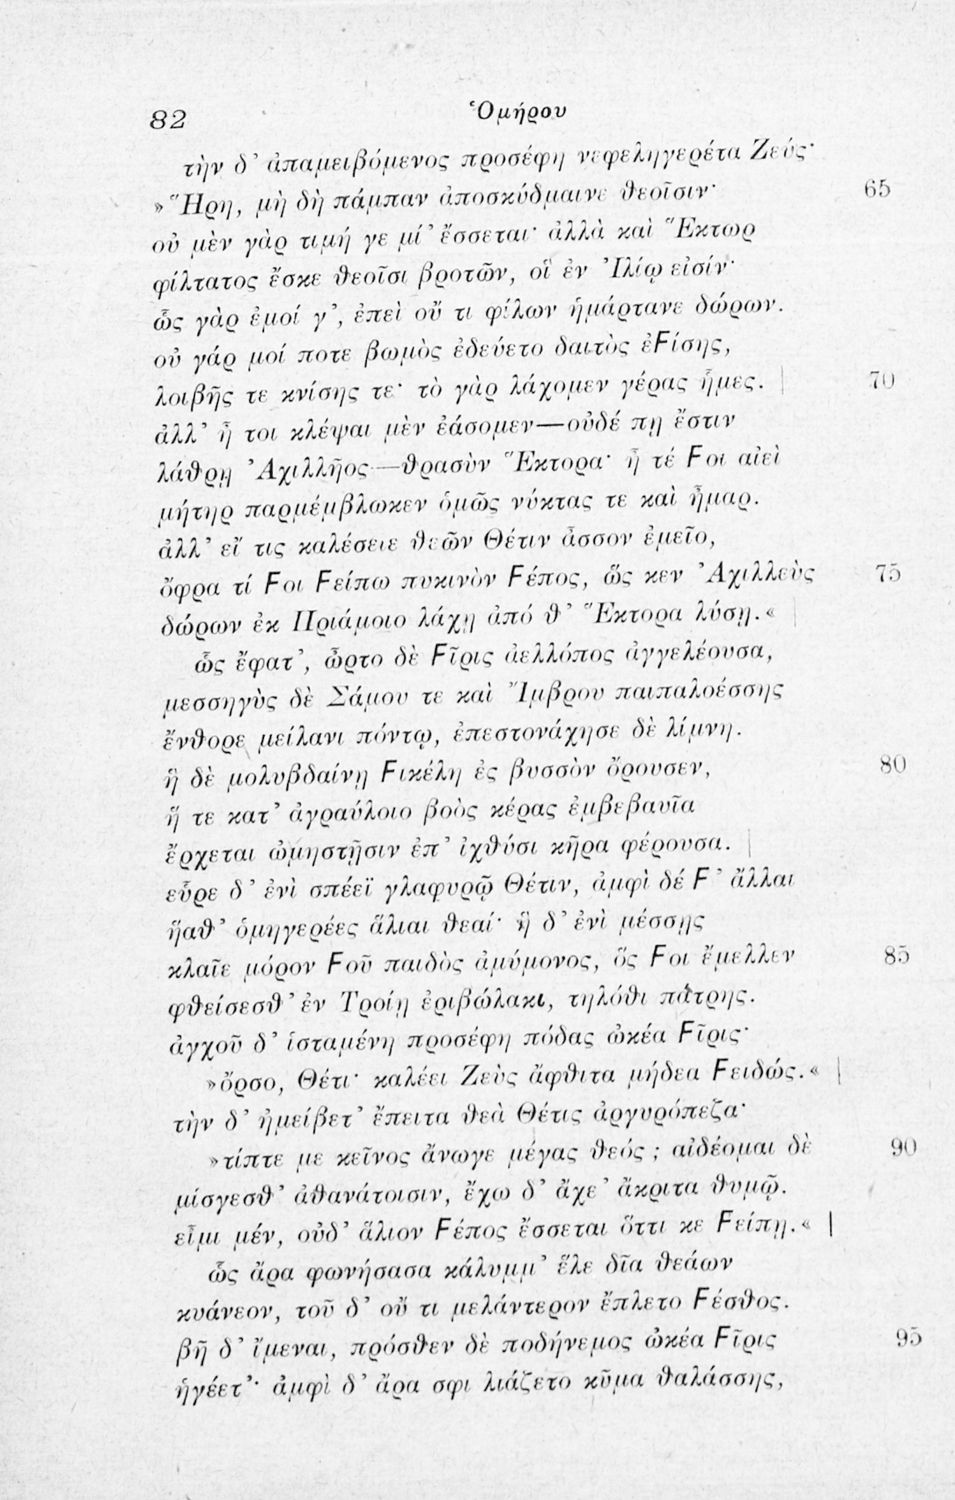 82 Ὁμήρου
τὴν δ᾽ ἀπαμειβόμενος προσέφη νεφεληγερέτα Ζεύς·
»Ἥρη, μὴ δὴ πάμπαν ἀποσκύδμαινε θεοῖσιν· 65
οὐ μὲν γὰρ τιμή γε μί᾽ ἔσσεται· ἀλλὰ καὶ Ἕκτωρ
φίλτατος ἔσκε θεοῖσι βροτῶν, οἳ ἐν Ἰλίῳ εἰσίν·
ὧς γὰρ ἐμοί γ᾽, ἐπεὶ οὔ τι φίλων ἡμάρτανε δώρων.
οὐ γάρ μοί ποτε βωμὸς ἐδεύετο δαιτὸς ἐϝίσης,
λοιβῆς τε κνίσης τε· τὸ γὰρ λάχομεν γέρας ἦμες. 70
ἀλλ᾽ ἦ τοι κλέψαι μὲν ἐάσομεν—οὐδέ πῃ ἔστιν
λάθρῃ Ἀχιλλῆος—θρασὺν Ἕκτορα· ἦ τέ ϝοι αἰεὶ
μήτηρ παρμέμβλωκεν ὁμῶς νύκτας τε καὶ ἦμαρ.
ἀλλ᾽ εἴ τις καλέσειε θεῶν Θέτιν ἆσσον ἐμεῖο,
ὄφρα τί ϝοι ϝείπω πυκινὸν ϝέπος, ὥς κεν Ἀχιλλεὺς 75
δώρων ἐκ Πριάμοιο λάχῃ ἀπό θ᾽ Ἕκτορα λύσῃ.«
ὣς ἔφατ᾽, ὦρτο δὲ ϝῖρις ἀελλόπος ἀγγελέουσα,
μεσσηγὺς δὲ Σάμου τε καὶ Ἴμβρου παιπαλοέσσης
ἔνθορε μείλανι πόντῳ, ἐπεστονάχησε δὲ λίμνη.
ἣ δὲ μολυβδαίνῃ ϝικέλη ἐς βυσσὸν ὄρουσεν, 80
ἥ τε κατ᾽ ἀγραύλοιο βοὸς κέρας ἐμβεβαυῖα
ἔρχεται ὠμηστῇσιν ἐπ᾽ ἰχθύσι κῆρα φέρουσα.
εὗρε δ᾽ ἐνὶ σπέεϊ γλαφυρῷ Θέτιν, ἀμφὶ δέ ϝ᾽ ἄλλαι
ἥαθ᾽ ὁμηγερέες ἅλιαι θεαί· ἣ δ᾽ ἐνὶ μέσσῃς
κλαῖε μόρον ϝοῦ παιδὸς ἀμύμονος, ὅς ϝοι ἔμελλεν 85
φθείσεσθ᾽ ἐν Τροίῃ ἐριβώλακι, τηλόθι πάτρης.
ἀγχοῦ δ᾽ ἱσταμένη προσέφη πόδας ὠκέα ϝῖρις·
»ὄρσο, Θέτι· καλέει Ζεὺς ἄφθιτα μήδεα ϝειδώς.«
τὴν δ᾽ ἠμείβετ᾽ ἔπειτα θεὰ Θέτις ἀργυρόπεζα·
»τίπτε με κεῖνος ἄνωγε μέγας θεός; αἰδέομαι δὲ 90
μίσγεσθ᾽ ἀθανάτοισιν, ἔχω δ᾽ ἄχε᾽ ἄκριτα θυμῷ.
εἶμι μέν, οὐδ᾽ ἅλιον ϝέπος ἔσσεται ὅττι κε ϝείπῃ.«
ὣς ἄρα φωνήσασα κάλυμμ᾽ ἕλε δῖα θεάων
κυάνεον, τοῦ δ᾽ οὔ τι μελάντερον ἔπλετο ϝέσθος.
βῆ δ᾽ ἴμεναι, πρόσθεν δὲ ποδήνεμος ὠκέα ϝῖρις 95
ἡγέετ᾽· ἀμφὶ δ᾽ ἄρα σφι λιάζετο κῦμα θαλάσσης,